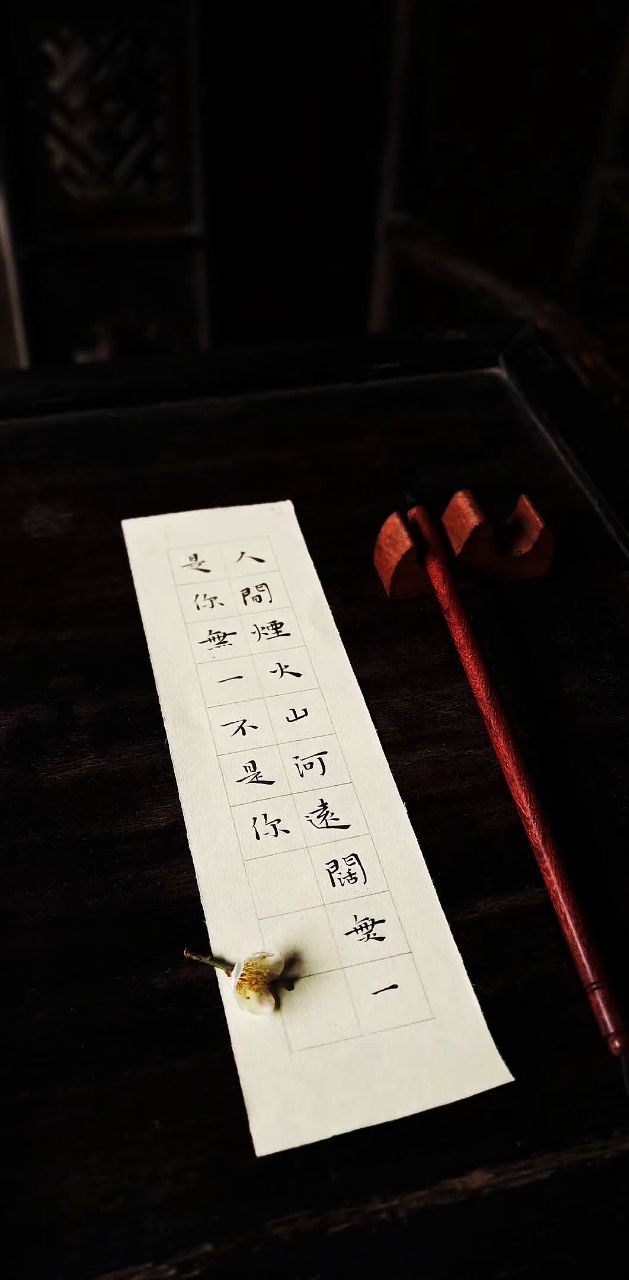 人間煙火山河遠闊無一
是你無一不是你